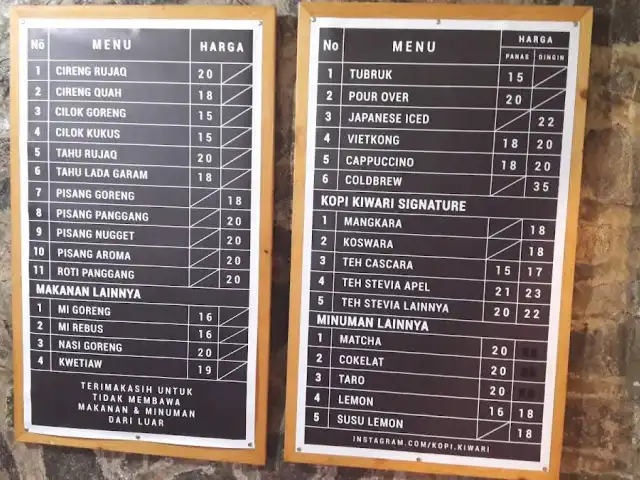 No MENU HARGA
1 CIRENG RUJAQ 20
2 CIRENG QUAH 18
3 CILOK GORENG 15
4 CILOK KUKUS 15
5 TAHU RUJAQ 20
6 TAHU LADA GARAM 18
7 PISANG GORENG 18
8 PISANG PANGGANG 20
9 PISANG NUGGET 20
10 PISANG AROMA 20
11 ROTI PANGGANG 20
MAKANAN LAINNYA
1 MI GORENG 16
2 MI REBUS 16
3 NASI GORENG 20
4 KWETIAW 19
TERIMAKASIH UNTUK
TIDAK MEMBAWA
MAKANAN & MINUMAN
DARI LUAR
No MENU HARGA
PANAS DINGIN
1 TUBRUK 15
2 POUR OVER 20
3 JAPANESE ICED 22
4 VIETKONG 18 20
5 CAPPUCCINO 18 20
6 COLDBREW 35
KOPI KIWARI SIGNATURE
1 MANGKARA 18
2 KOSWARA 18
3 TEH CASCARA 15 17
4 TEH STEVIA APEL 21 23
5 TEH STEVIA LAINNYA 20 22
MINUMAN LAINNYA
1 MATCHA 20
2 COKELAT 20
3 TARO 20
4 LEMON 16 18
5 SUSU LEMON 18
INSTAGRAM.COM/KOPI.KIWARI